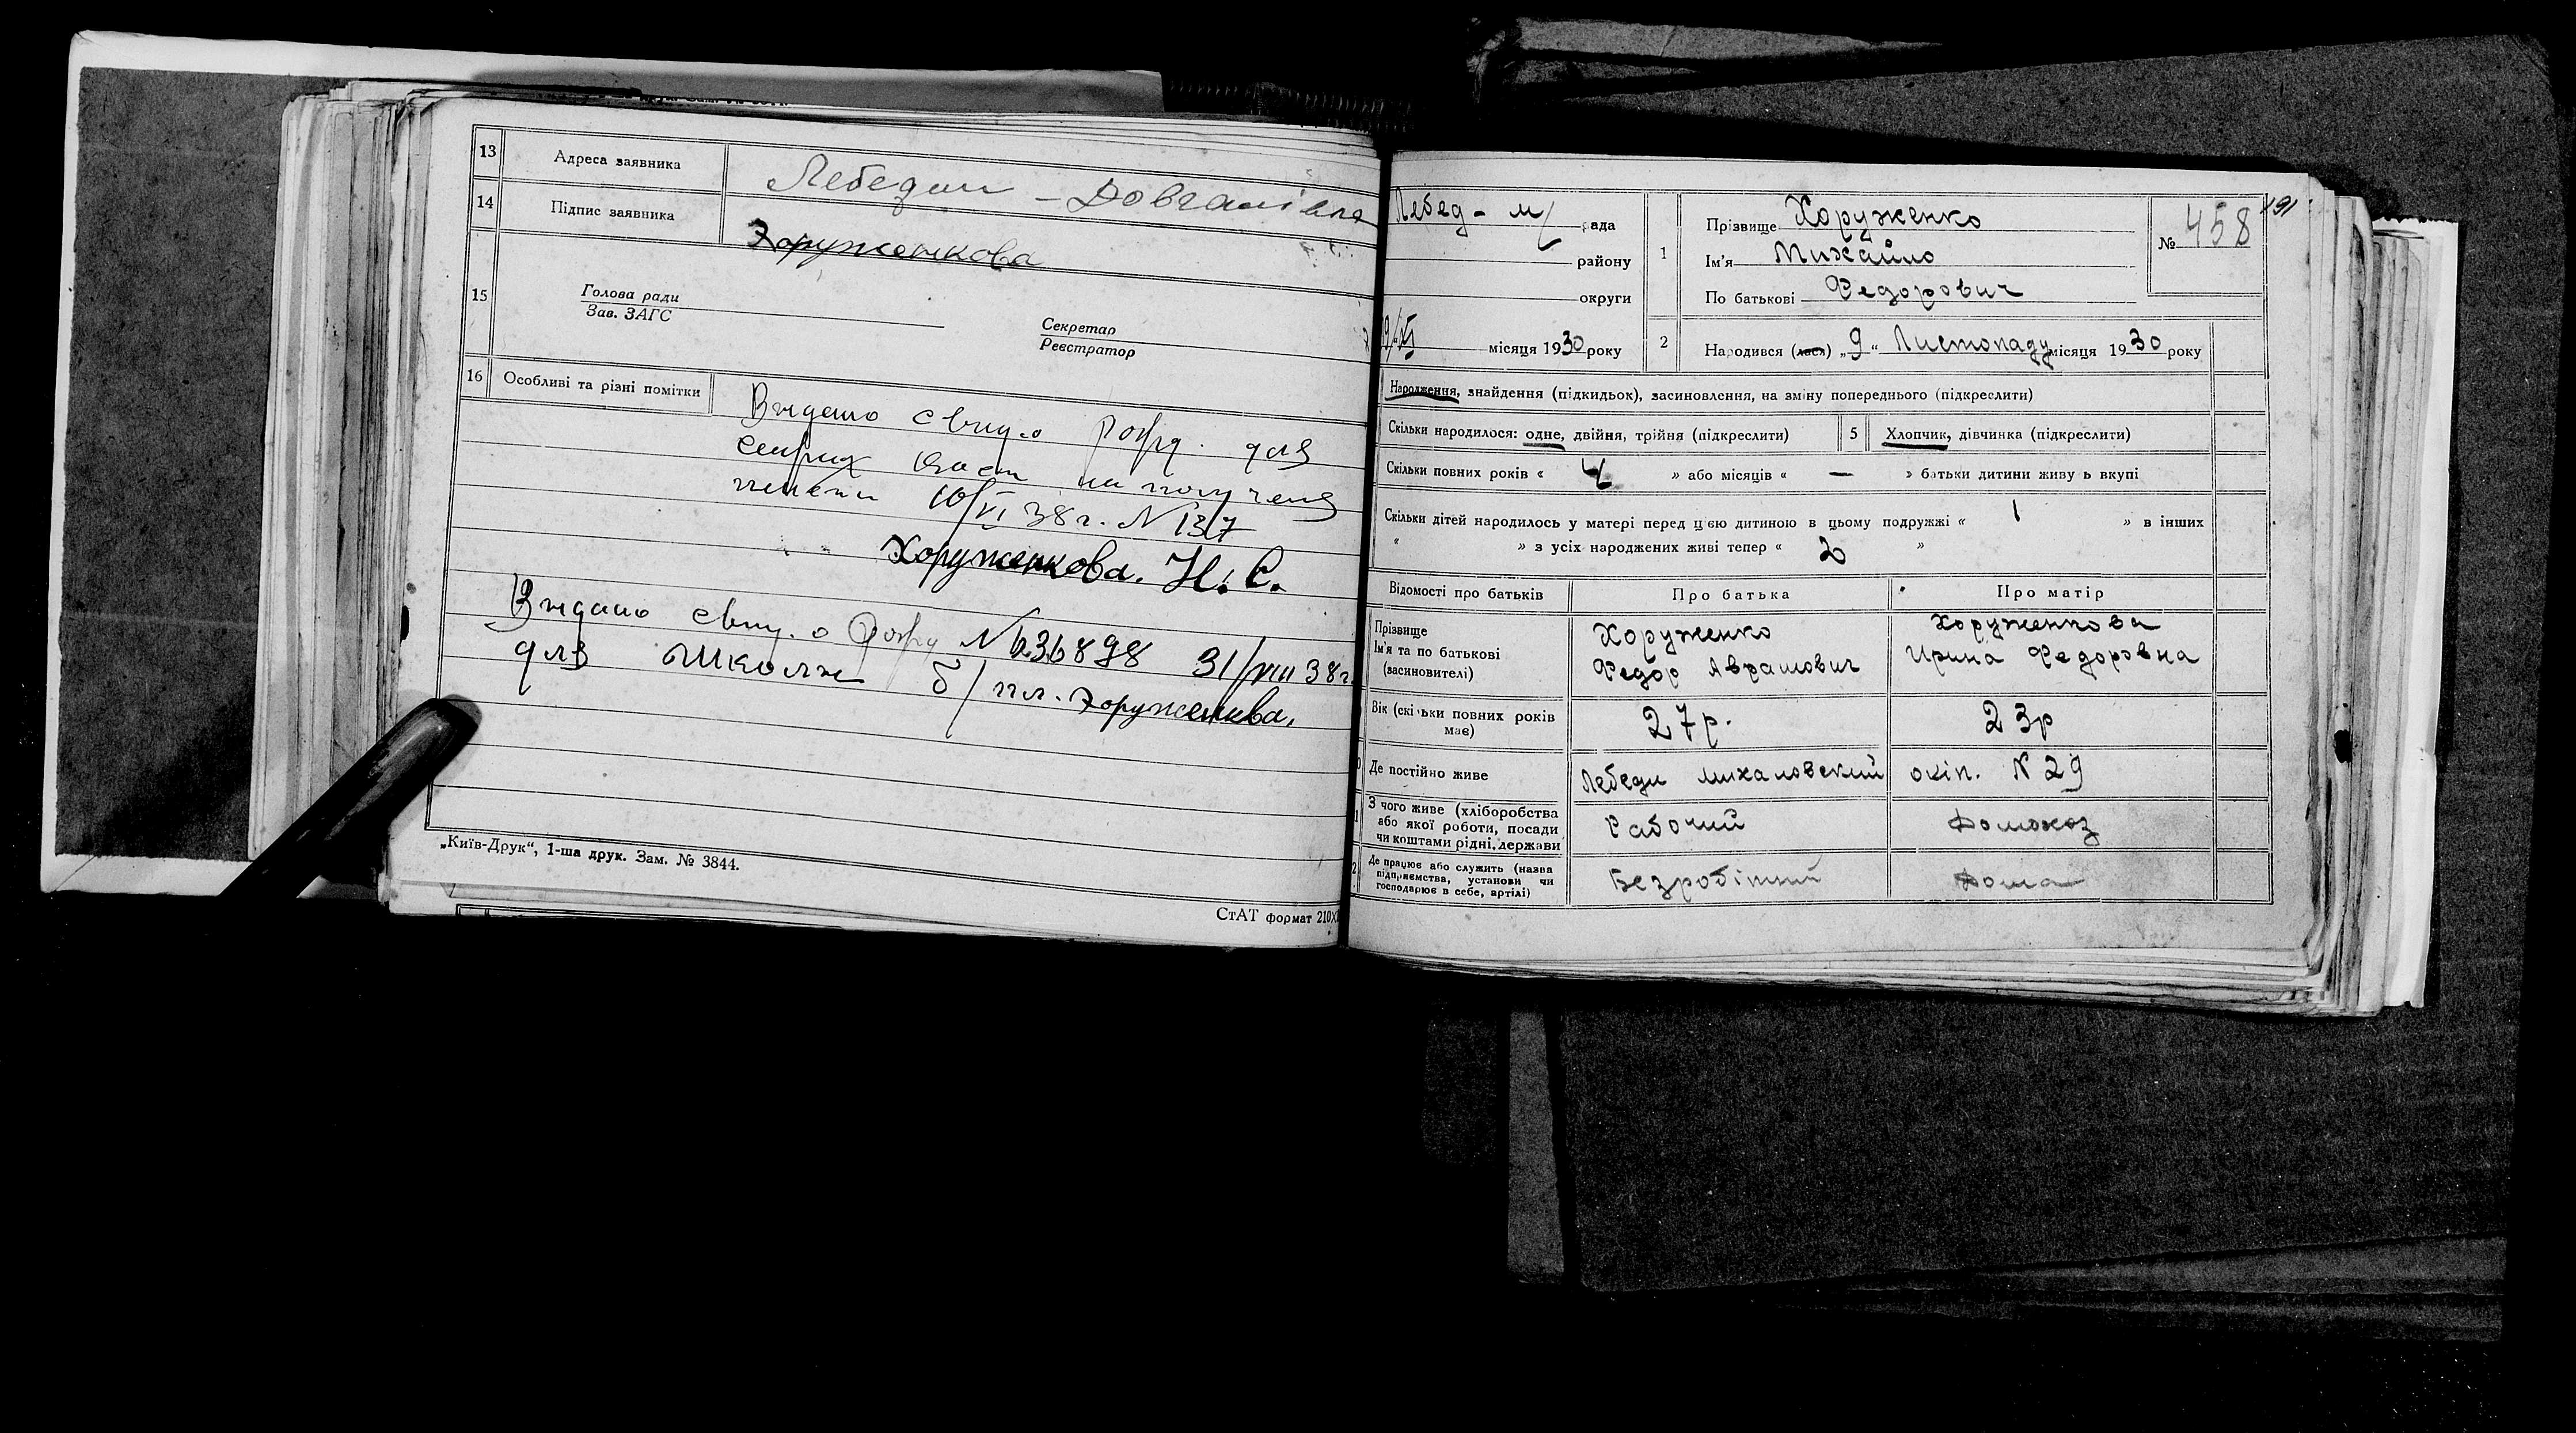 13 Адреса заявника Лебедин - Довганівка
14 Підпис заявника Хоруженкова
15 Голова ради
Зав. ЗАГС
Секретар
Реєстратор
16 Особливі та різні помітки
Видано свид. о рожд. для
на получения
пенсии 10/VI 38 г. N 137
Хоруженкова. Н. С.
Видано свид. о рожд N 636898 31/VIII 38 г.
для школы б/пл. Хоруженкова,
„Київ-Друк“, 1-ша друк. Зам. № 3844.
СтАТ формат 210
191
Лебед - м/ рада
району
округи
19/XI місяця 1930 року
1 Прізвище Хоруженко
Ім'я Михайло
По батькові Федорович
№ 458
2 Народився (лася) „9“ Листопаду місяця 1930 року
Народження, знайдення (підкидьок), засиновлення, на зміну попереднього (підкреслити)
Скільки народилося: одне, двійня, трійня (підкреслити) 5 Хлопчик, дівчинка (підкреслити)
Скільки повних років « 4 » або місяців « — » батьки дитини живуть вкупі
Скільки дітей народилось у матері перед цією дитиною в цьому подружжі « 1 » в інших
« » з усіх народжених живі тепер « 2 »
Відомості про батьків Про батька Про матір
Прізвище
Ім'я та по батькові
(засиновителі)
Хоруженко
Федор Аврамович
Хоруженкова
Ирина Федоровна
Вік (скільки повних років має) 27 р. 23 р
Де постійно живе Лебеди Михаловский окіп. N 29
З чого живе (хліборобства
або якої роботи, посади
чи коштами рідні, держави
Рабочий Домохоз
Де працює або служить (назва
підприємства, установи чи
господарює в себе, артілі)
Безробітний Дома